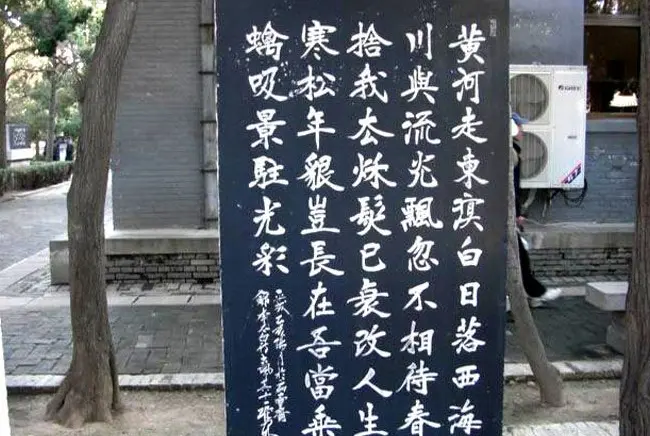 黄河走東溟白日落西海
川與流光飄忽不相待春
捨我去秋髮已衰改人生
寒松年貌豈長在吾當乘
螭吸景駐光彩